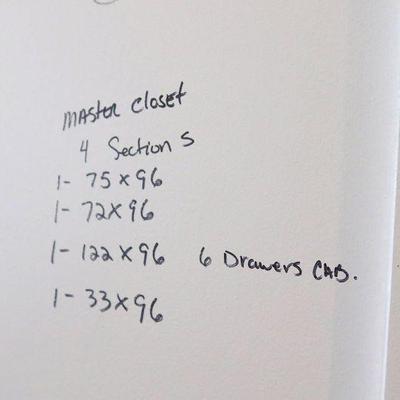 MASTER Closet
4 Sections
1- 75x96
1- 72x96
1- 122x96 6 Drawers CAB.
1- 33x96